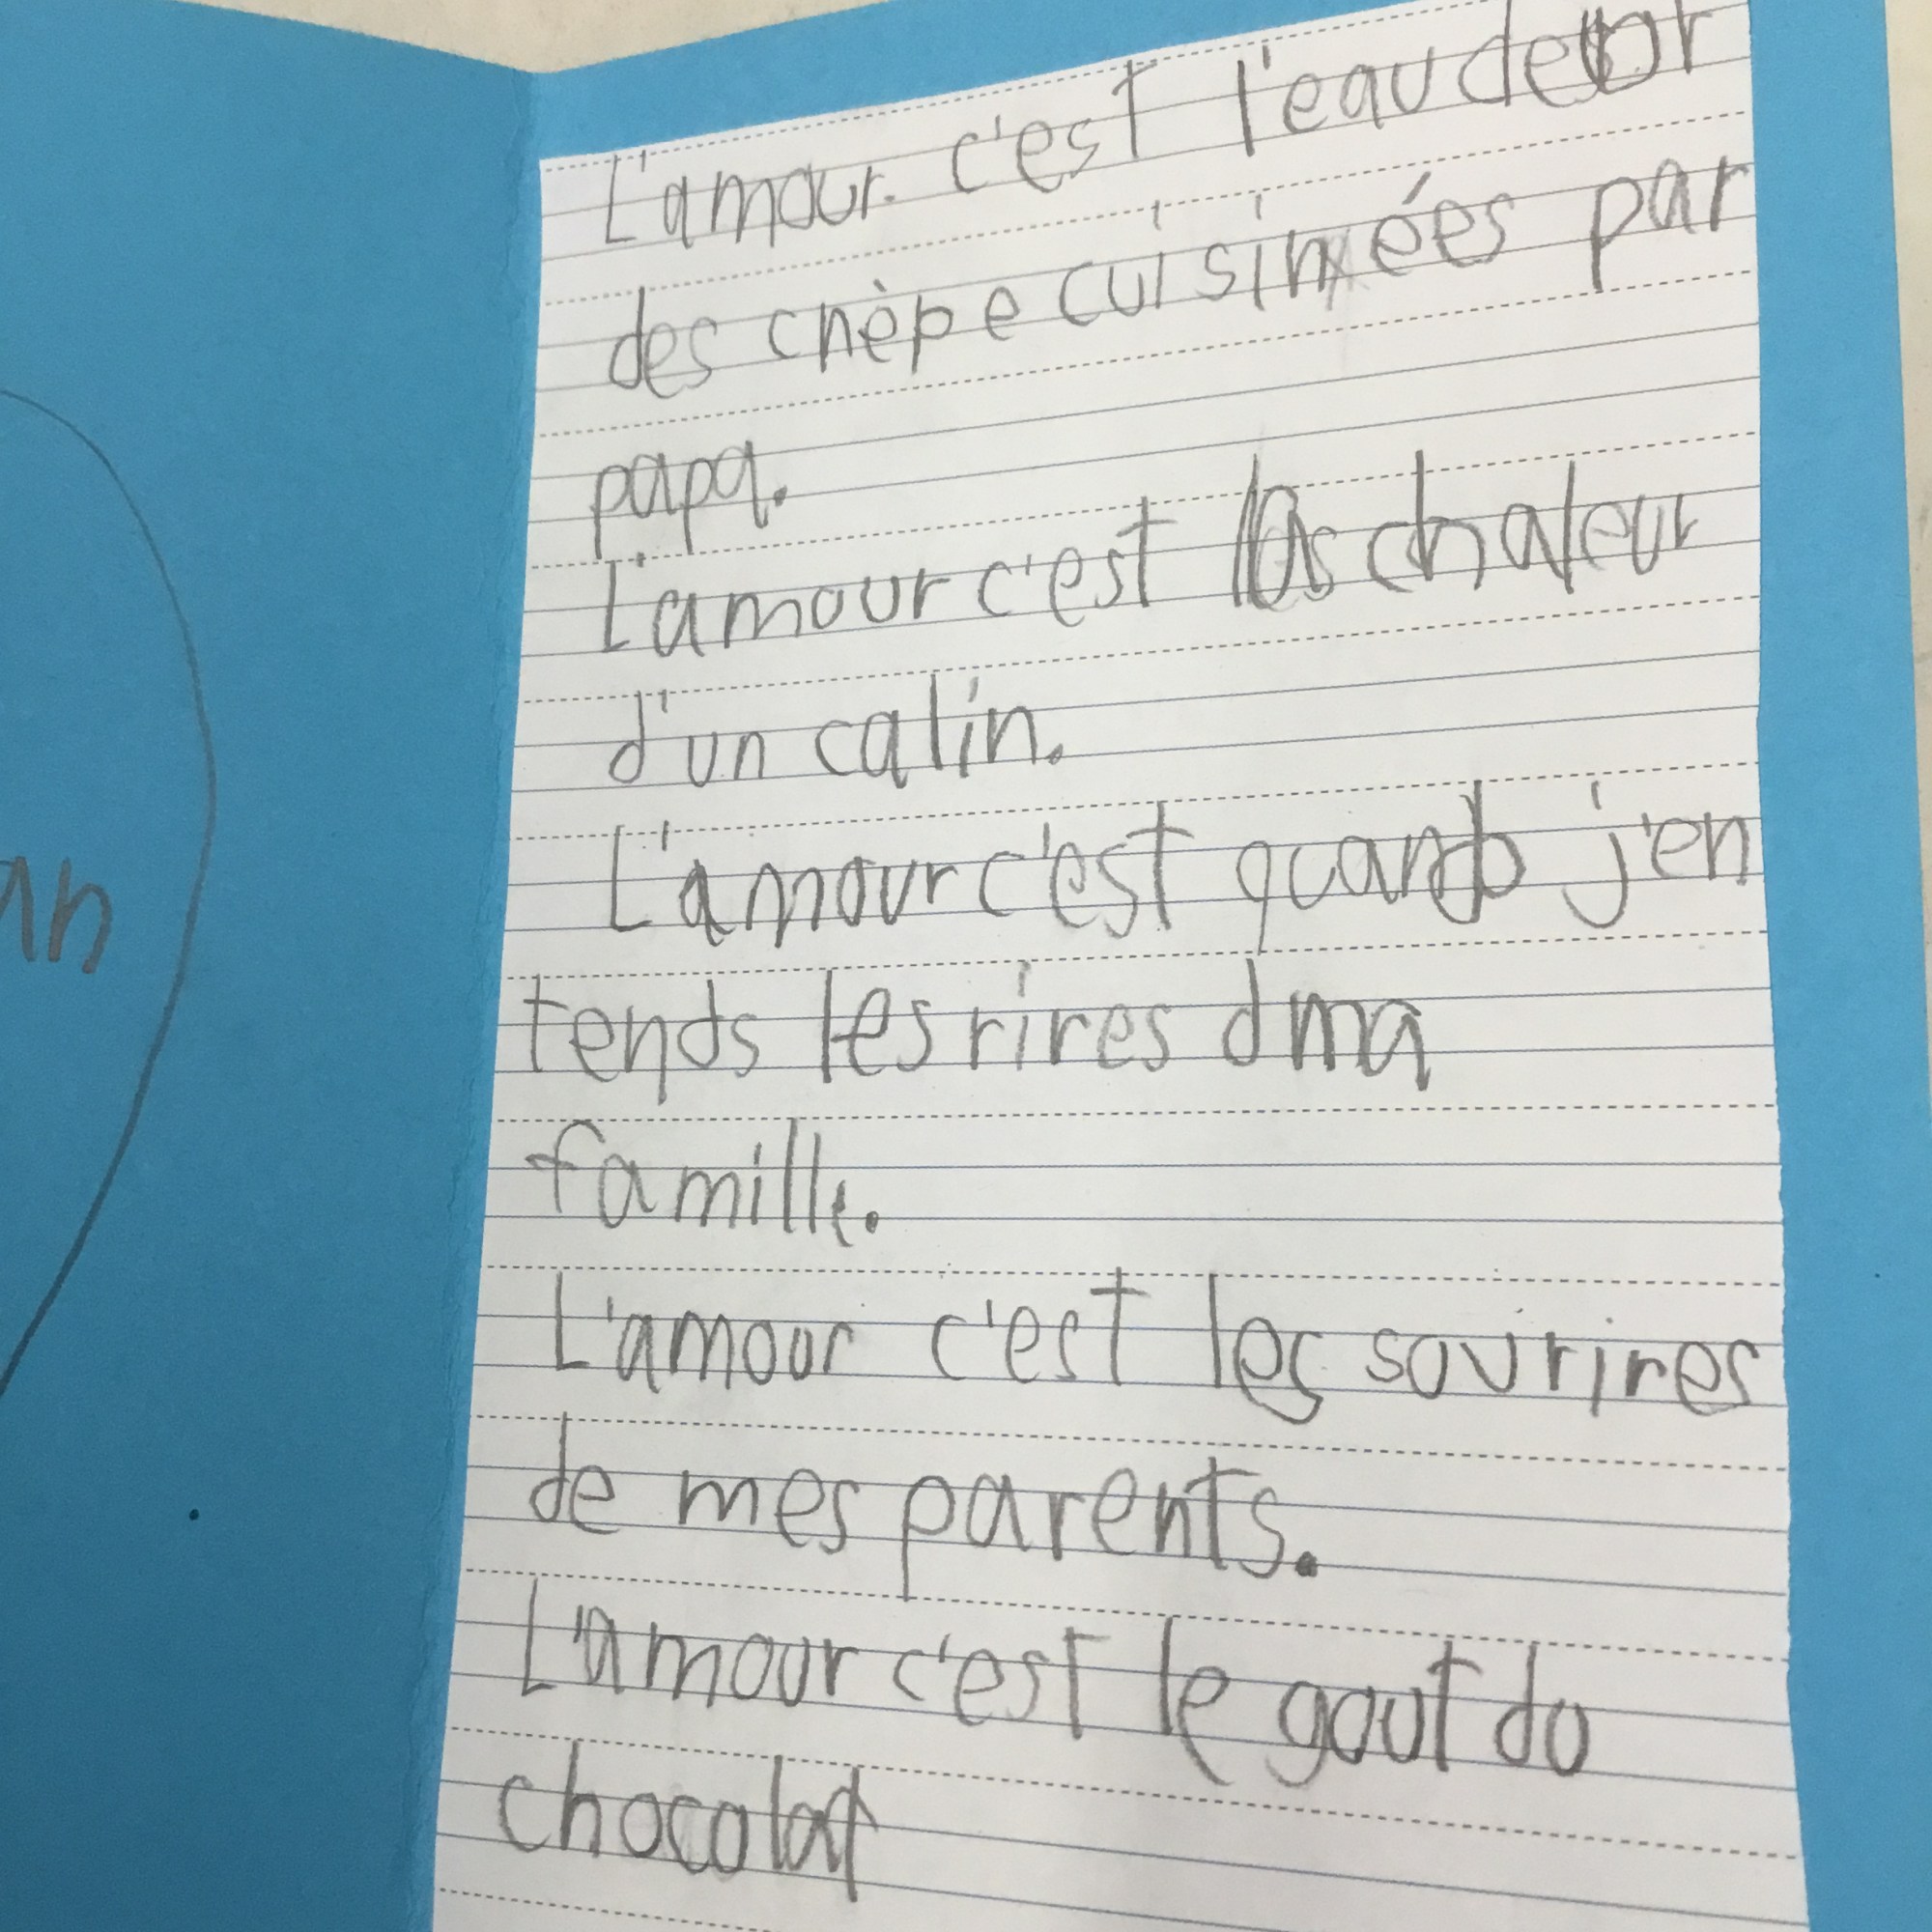 L'amour. c'est l'eaudeur
des chèpe cuisinées par
papa.
L'amour c'est la chaleur
d'un calin.
L'amour c'est quand j'en
tends les rires d ma
famille.
L'amour c'est les sourires
de mes parents.
L'amour c'est le gout du
chocolat
an